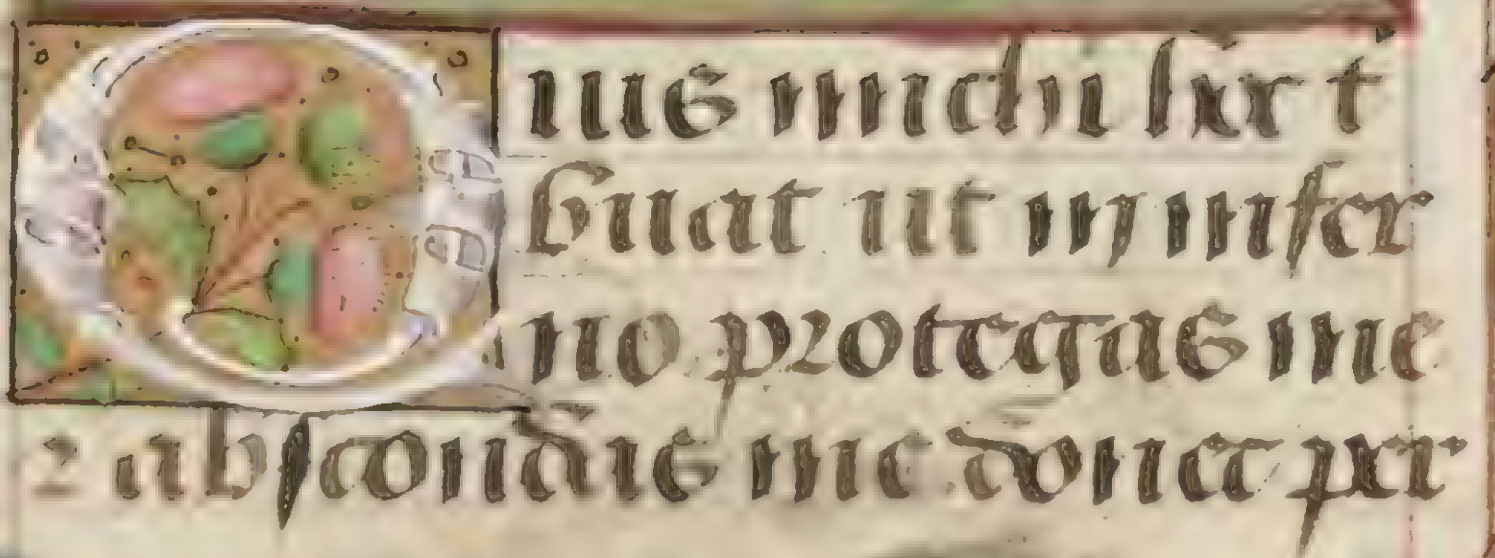 Quis michi hec t
buat ut in infer
no protegas me
⁊ abscondis me donec per